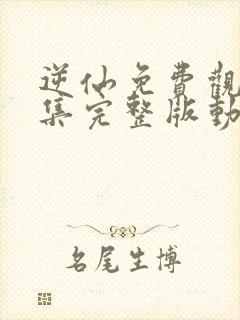 逆仙免費觀
集完整版動
名尾生博